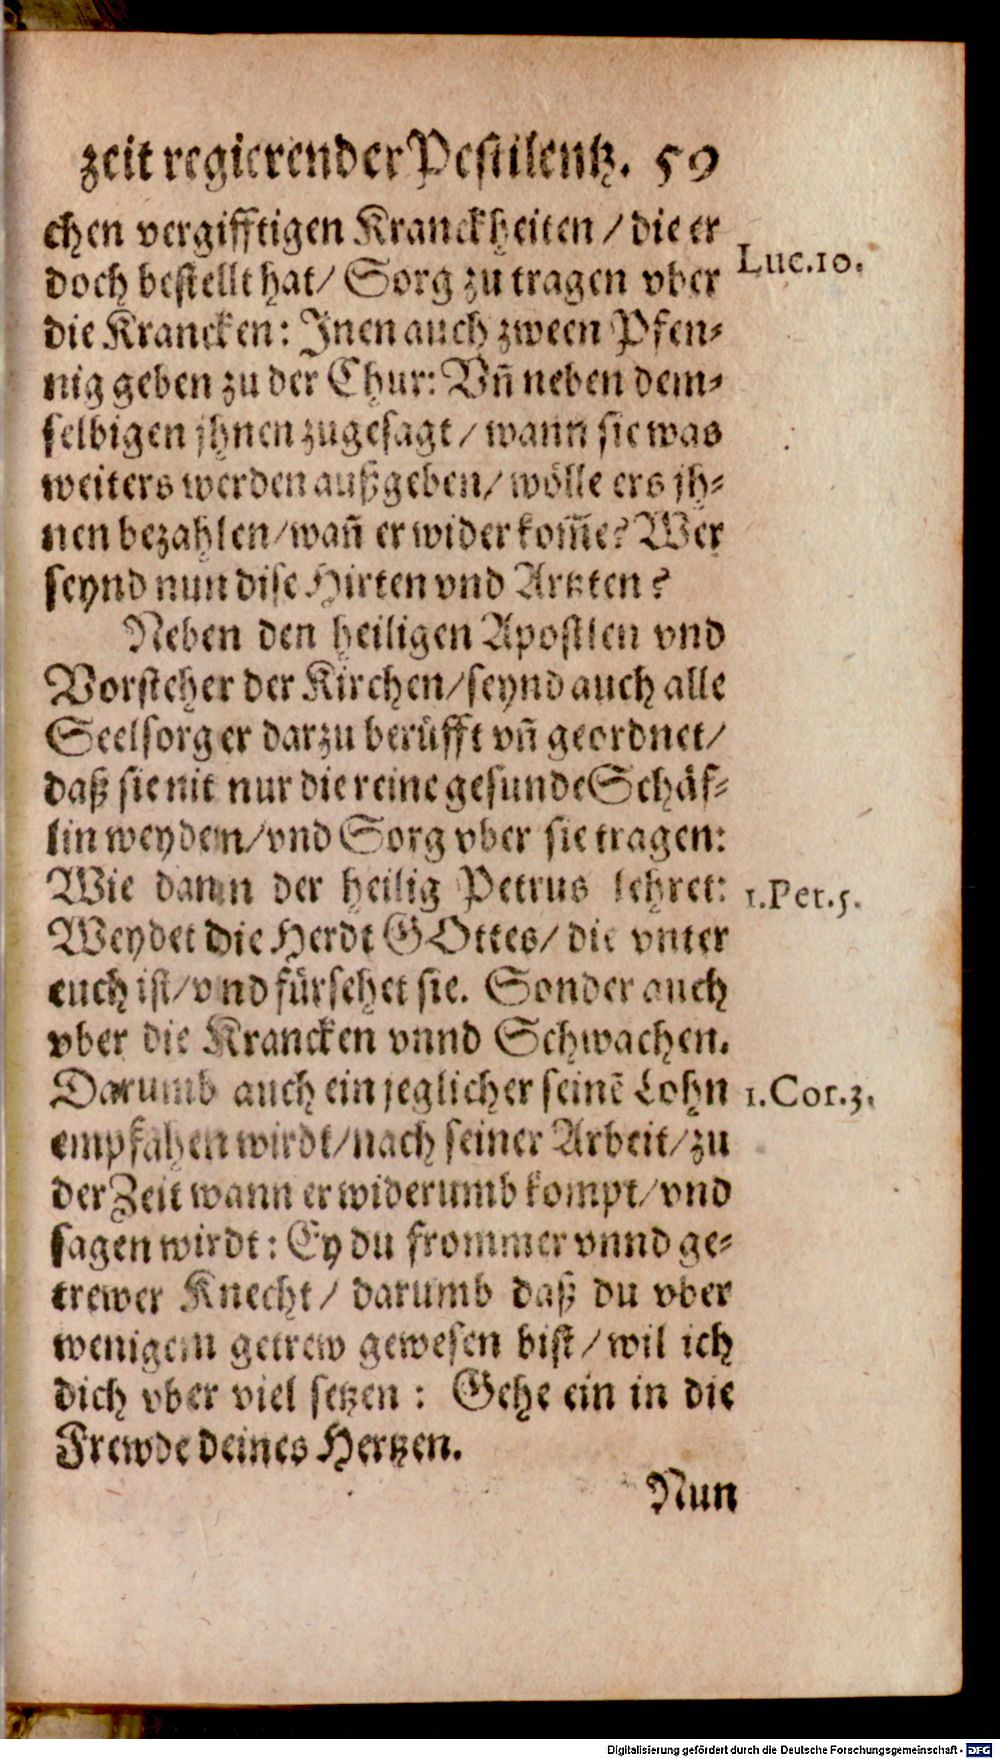 zeit regierender Pestilentz. 59
chen vergifftigen Kranckheiten / die er
doch bestellt hat / Sorg zu tragen vber
Luc. 10.
die Krancken: Inen auch zween Pfen⸗
nig geben zu der Chur: Vn̄ neben dem⸗
selbigen jhnen zugesagt / wann sie was
weiters werden außgeben / wölle ers jh⸗
nen bezahlen / wan̄ er wider kom̄e? Wer
seynd nun dise Hirten vnd Artzten?
Neben den heiligen Apostlen vnd
Vorsteher der Kirchen / seynd auch alle
Seelsorger darzu berüfft vn̄ geordnet /
daß sie nit nur die reine gesunde Schäf⸗
lin weyden / vnd Sorg vber sie tragen:
Wie dann der heilig Petrus lehret:
1. Pet. 5.
Weydet die Herdt GOttes / die vnter
euch ist / vnd fürsehet sie. Sonder auch
vber die Krancken vnnd Schwachen.
Darumb auch ein jeglicher seinē Lohn
1. Cor. 3.
empfahen wirdt / nach seiner Arbeit / zu
der Zeit wann er widerumb kompt / vnd
sagen wirdt: Ey du frommer vnnd ge⸗
trewer Knecht / darumb daß du vber
wenigem getrew gewesen bist / wil ich
dich vber viel setzen: Gehe ein in die
Frewde deines Hertzen.
Nun
Digitalisierung gefördert durch die Deutsche Forschungsgemeinschaft - DFG